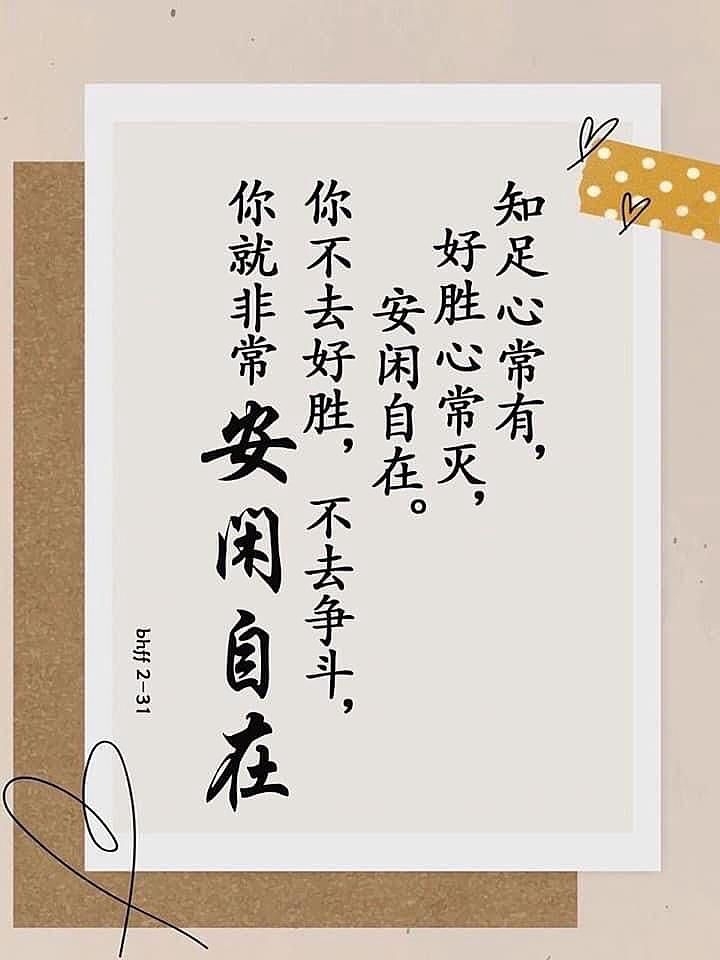 知足心常有，
好胜心常灭，
安闲自在。
你不去好胜，不去争斗，
你就非常安闲自在
bhff 2-31